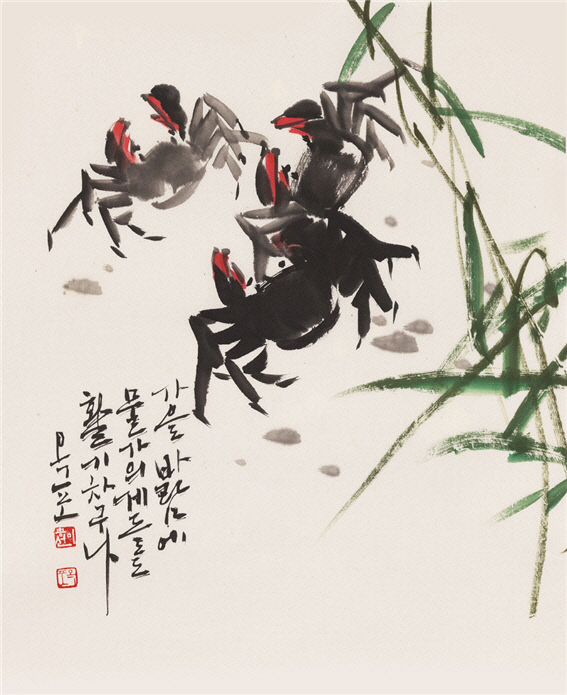 가을 바람에
물가의 게들도
활기차구나